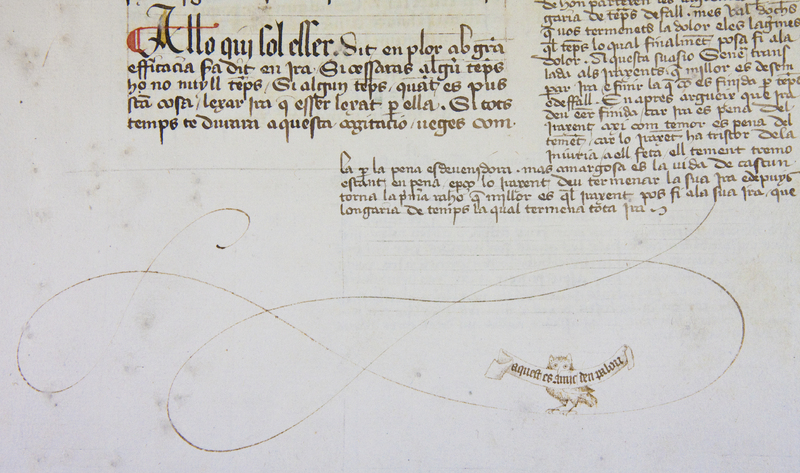 Allo qui sol esser. Dit en plor ab grã
efficacia fa dit en ira. Si cessaras algũ tẽps
ho no nuyll tẽps, Si algun tẽps, quãt es pus
cosa, lexar ira q̃ esser lexat ꝑ ella. Si tots
temps te durara aquesta agitacio, veges com
garia de tẽps defall. mes val dochs
q̃ vos termenets la dolor eles lagmes
q̃l tẽps lo qual finalmẽt posa fi ala
dolor. Aquesta suasio Sene trans
lada als irarents, q̃ millor es
par ira e finir la q̃ es finida ꝑ tẽps
Enapres arguex que ira
deu eer finida, car ira es pena del
irarent axi com temor es pena del
temẽt, car lo irarẽt ha tristor dela
iniuria aell feta, ell tement tremo
la ꝑ la pena esdevenidora. mas amargosa es la vida de cascun
estant en pena, lo irarent deu termenar la sua ira edepuys
torna la raho, q̃ millor es q̃l irarent pos fi ala sua ira, que
longaria de temps la qual termena tota ira
aquest es amic den